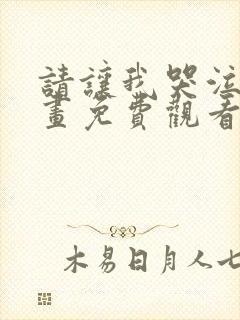 請讓我哭泣
畫免費觀看
木易日月人七